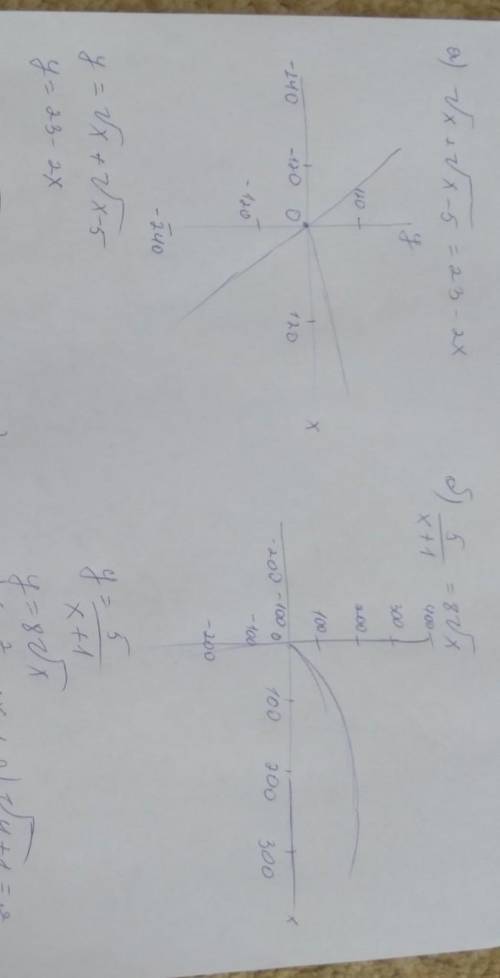 а) √x + √x-5 = 23 - 2x
y
120
-240 -120 0 120 x
-120
-240
y = √x + √x-5
y = 23 - 2x
б) 5/x+1 = 8√x
400
300
200
100
-200 -100 0 100 200 300 x
-100
-200
y = 5/x+1
y = 8√x